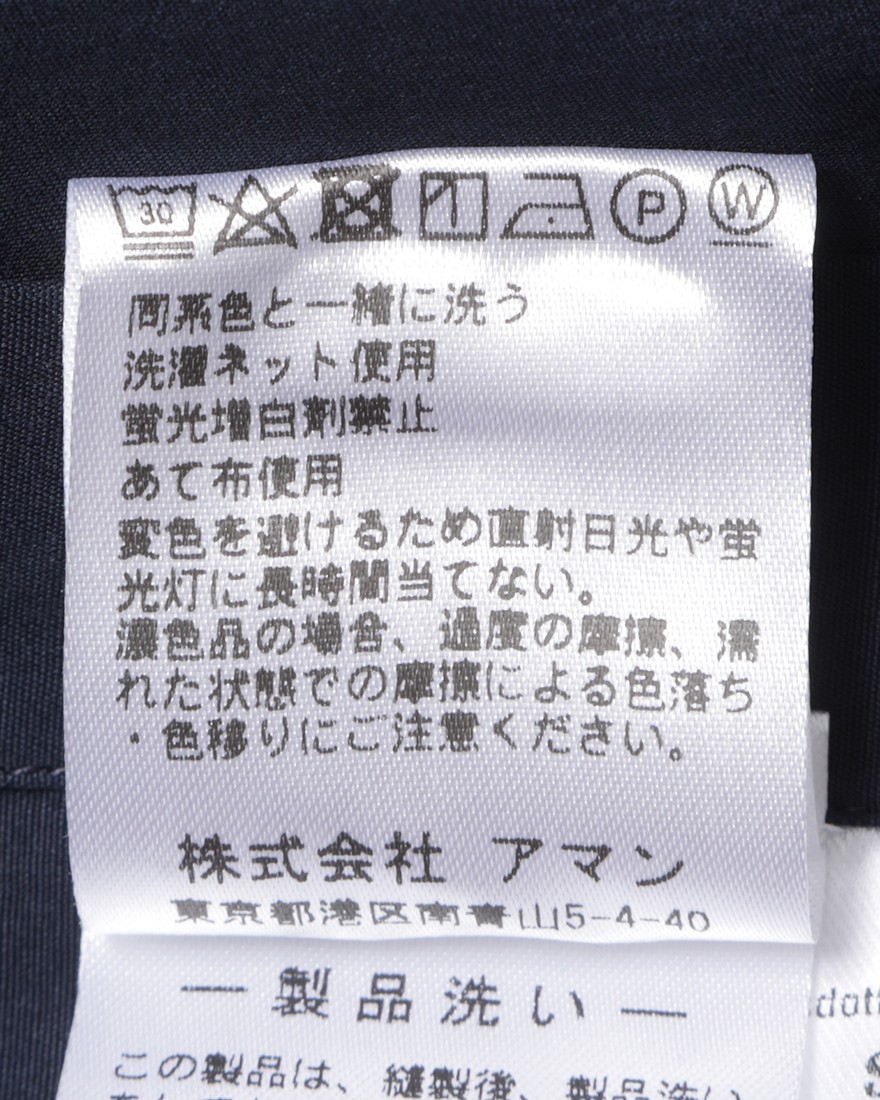 30 P W
同系色と一緒に洗う
洗濯ネット使用
蛍光増白剤禁止
あて布使用
変色を避けるため直射日光や蛍
光灯に長時間当てない。
濃色品の場合、過度の摩擦、濡
れた状態での摩擦による色落ち
・色移りにご注意ください。
株式会社 アマン
東京都港区南青山5-4-40
— 製品洗い —
この製品は、縫製後、製品洗い